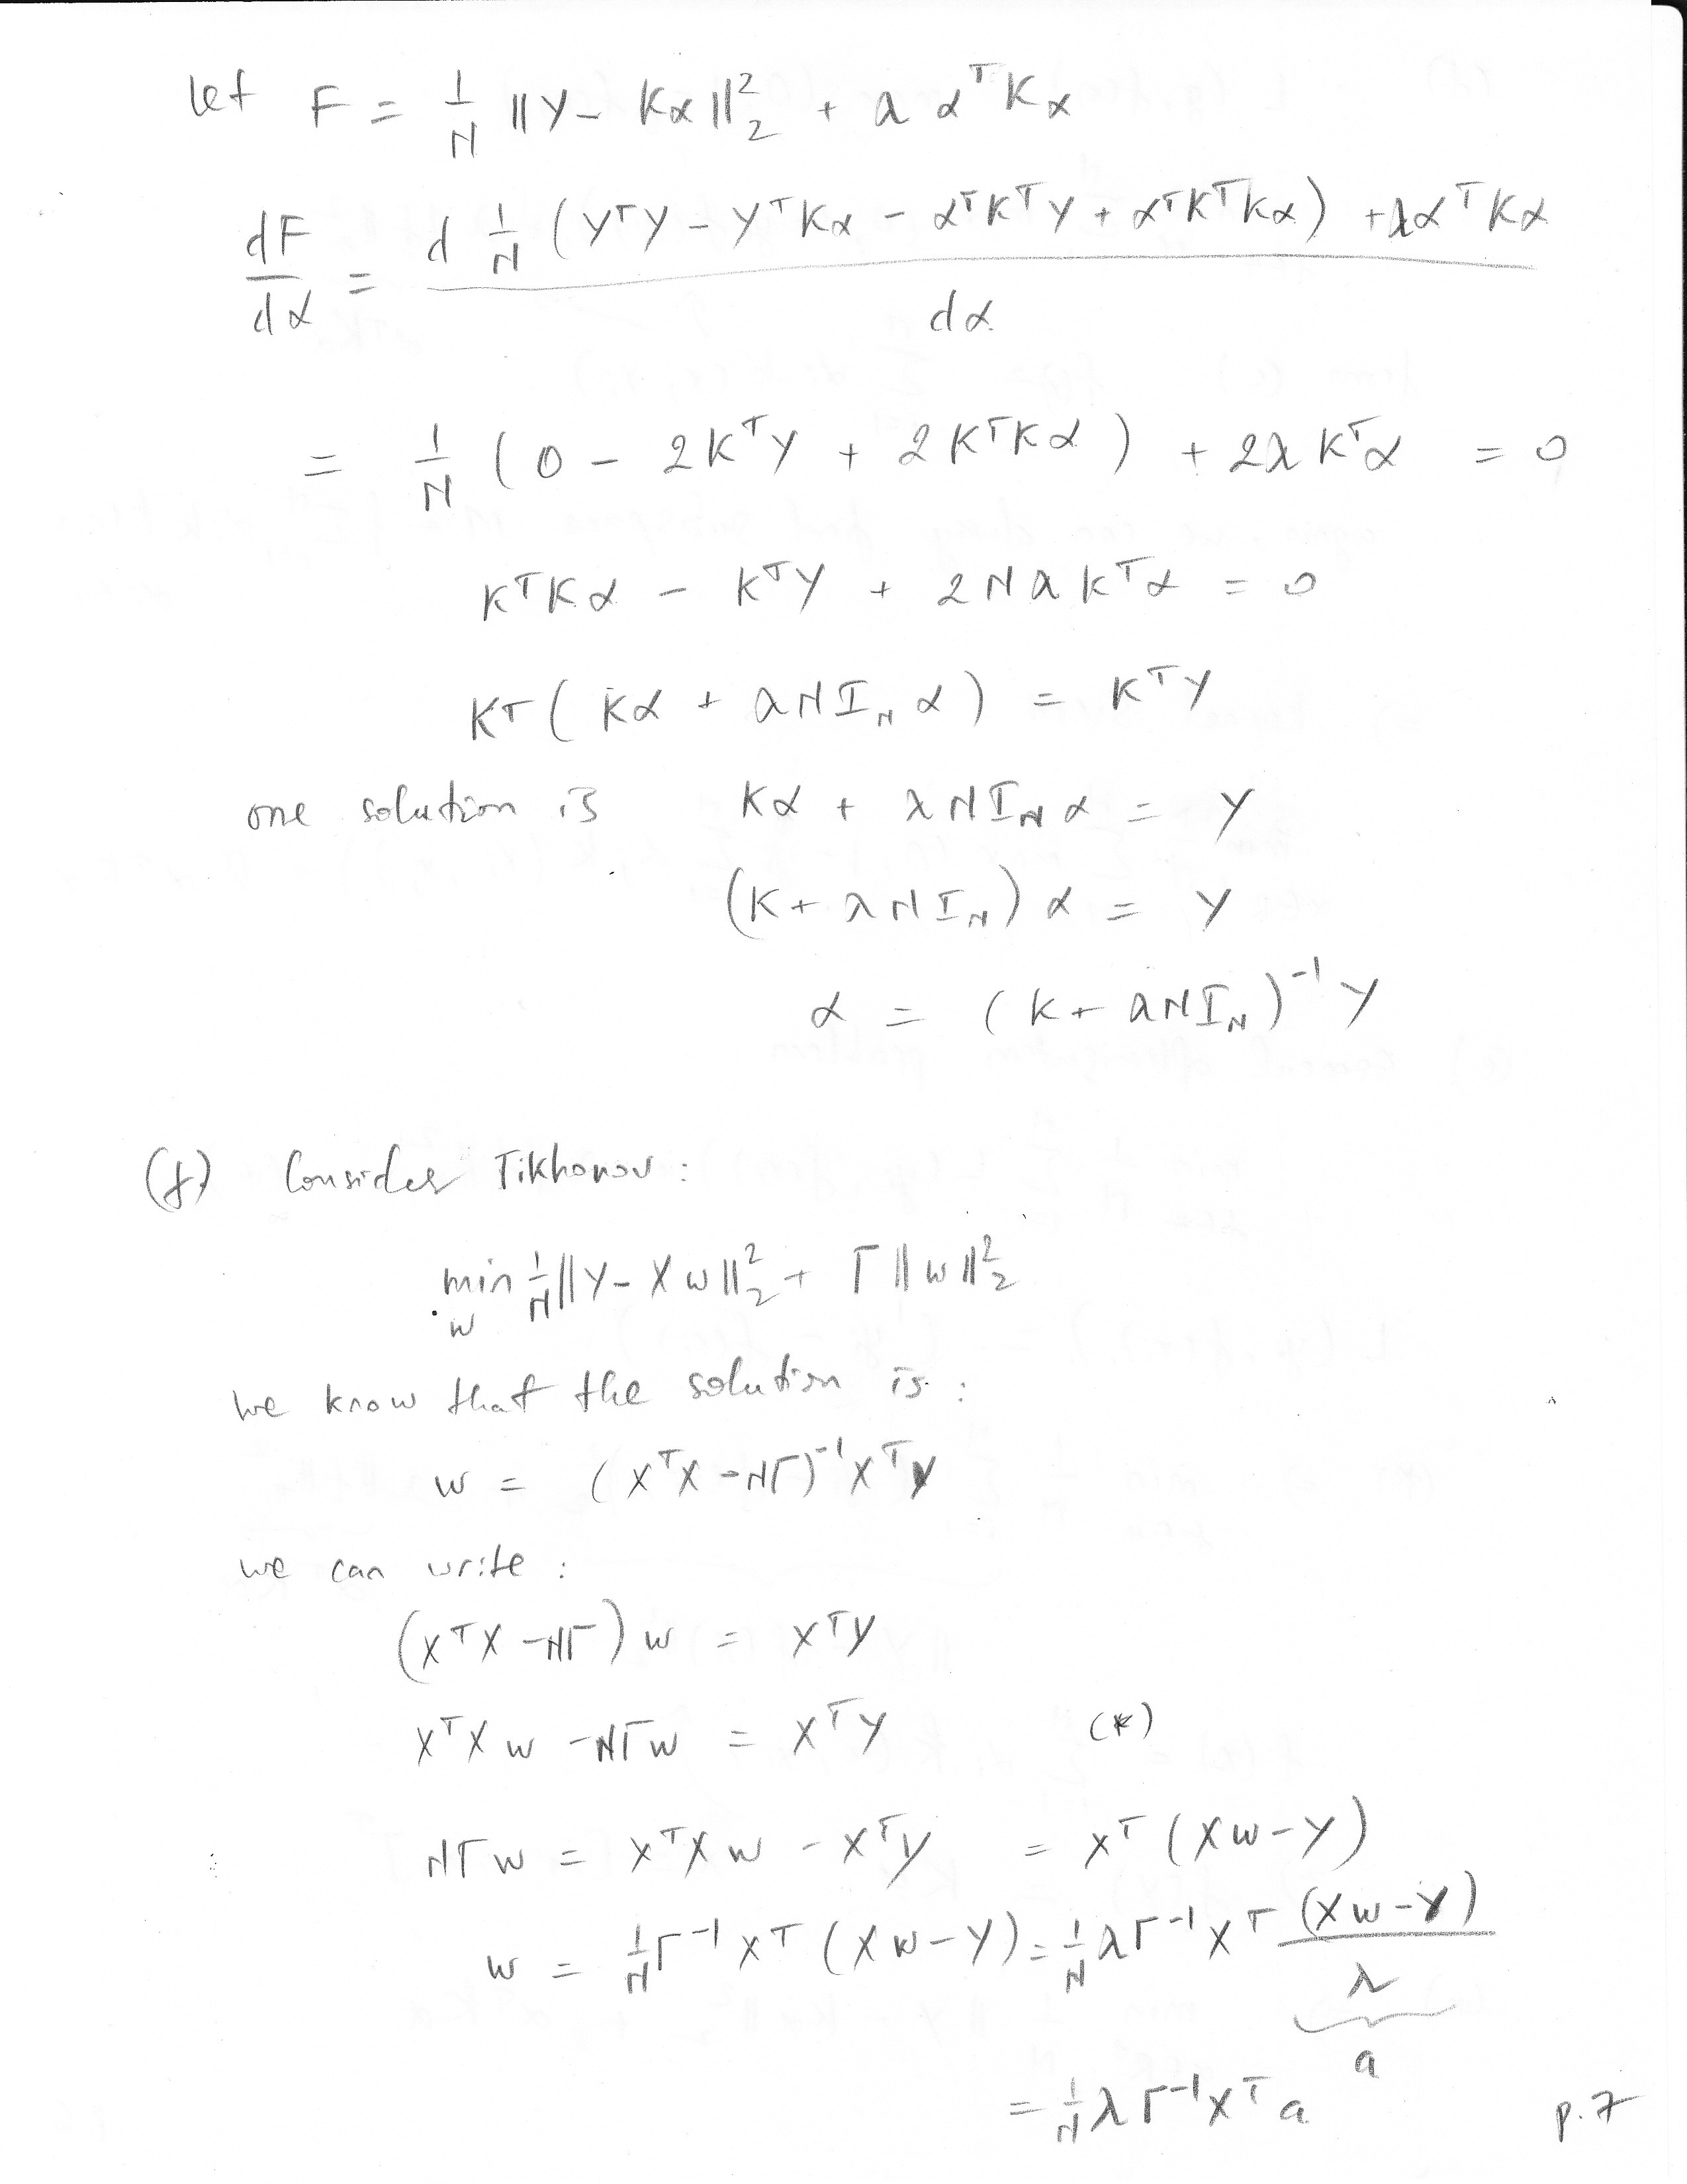 let F = 1/N ||Y - Kα||₂² + λ αᵀKα
dF/dα = d 1/N (YᵀY - YᵀKα - αᵀKᵀY + αᵀKᵀKα) + λαᵀKα / dα
= 1/N (0 - 2KᵀY + 2KᵀKα) + 2λKᵀα = 0
KᵀKα - KᵀY + 2NλKᵀα = 0
Kᵀ(Kα + λNI_N α) = KᵀY
one solution is Kα + λNI_N α = Y
(K + λNI_N) α = Y
α = (K + λNI_N)⁻¹ Y
(f) Consider Tikhonov:
min_w 1/N ||Y - Xw||₂² + Γ||w||₂²
we know that the solution is:
w = (XᵀX - NΓ)⁻¹XᵀY
we can write:
(XᵀX - NΓ) w = XᵀY
XᵀXw - NΓw = XᵀY (*)
NΓw = XᵀXw - XᵀY = Xᵀ(Xw - Y)
w = 1/N Γ⁻¹Xᵀ(Xw - Y) = 1/N λΓ⁻¹Xᵀ (Xw - Y)/λ
a
= 1/N λΓ⁻¹Xᵀa
p.7